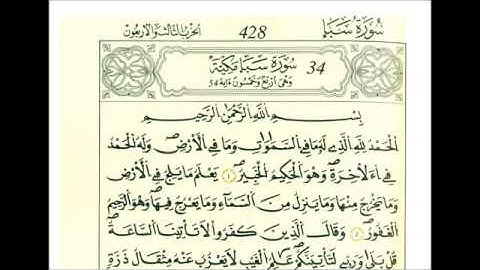 سُورَةُ سَبَإٍ 428 الحزب الثالث والأربعون
34 سُورَةُ سَبَإٍ مَكِّيَّة
وَهْىَ أَرْبَعٌ وَخَمْسُونَ ءَايَة 54
بِسْمِ اِللَّهِ اِلرَّحْمَٰنِ اِلرَّحِيمِ
اَلْحَمْدُ لِلهِ اِلذِے لَهُۥ مَا فِے اِلسَّمَٰوَٰتِ وَمَا فِے اِلْأَرْضِ وَلَهُ اُلْحَمْدُ
فِے اِءَلَاخِرَةِ وَهُوَ اَلْحَكِيمُ اُلْخَبِيرُ ١ يَعْلَمُ مَا يَلِجُ فِے اِلْأَرْضِ
وَمَا يَخْرُجُ مِنْهَا وَمَا يَنزِلُ مِنَ اَلسَّمَآءِ وَمَا يَعْرُجُ فِيهَا وَهُوَ اَلرَّحِيمُ
اُلْغَفُورُ ٢ وَقَالَ اَلذِينَ كَفَرُواْ لَا تَاتِينَا اَلسَّاعَةُ
قُلْ بَلَىٰ وَرَبِّے لَتَاتِيَنَّكُمْ عَٰلِمُ اُلْغَيْبِ لَا يَعْزُبُ عَنْهُ مِثْقَالُ ذَرَّةٍ